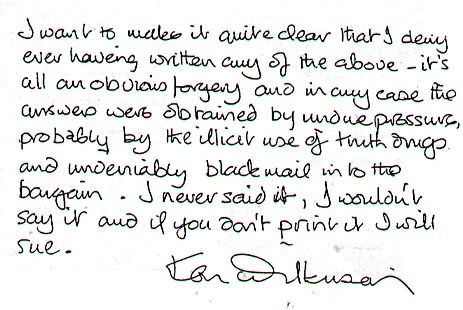 I want to make it quite clear that I deny
ever having written any of the above - it's
all an obvious forgery and in any case the
answers were obtained by undue pressure,
probably by the illicit use of truth drugs
and undeniably blackmail in to the
bargain. I never said it, I wouldn't
say it and if you don't print it I will
sue.
Ken Wilkinson